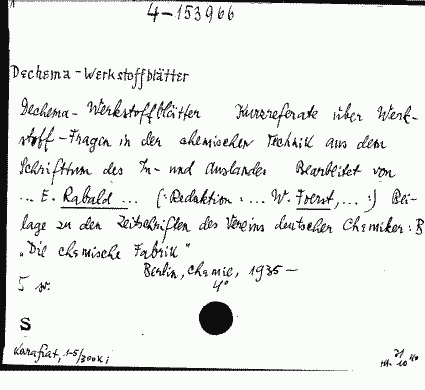 4-153966
Dechema-Werkstoffblätter
Dechema-Werkstoffblätter Kurzreferate über Werk-
stoff-Fragen in der chemischen Technik aus dem
Schrifttum des In- und Auslandes Bearbeitet von
... E. Rabald ... (: Redaktion: ... W. Foerst, ... :) Bei-
lage zu den Zeitschriften des Vereins deutscher Chemiker: B
„Die chemische Fabrik"
Berlin, Chemie, 1935 -
4°
S
Karafiat, 1-5/300K;